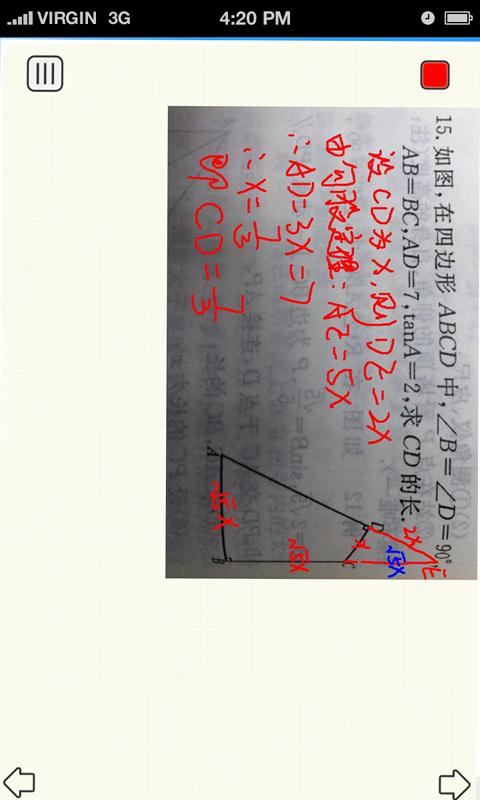 VIRGIN 3G 4:20 PM
15. 如图,在四边形 ABCD 中,∠B=∠D=90°
AB=BC,AD=7,tanA=2,求 CD 的长.
设CD为X,则DE=2X
由勾股定理:AE=5X
∴AD=3X=7
∴X=7/3
即CD=7/3
A
B
C
D
E
√5X
√5X
√5X
X
2X